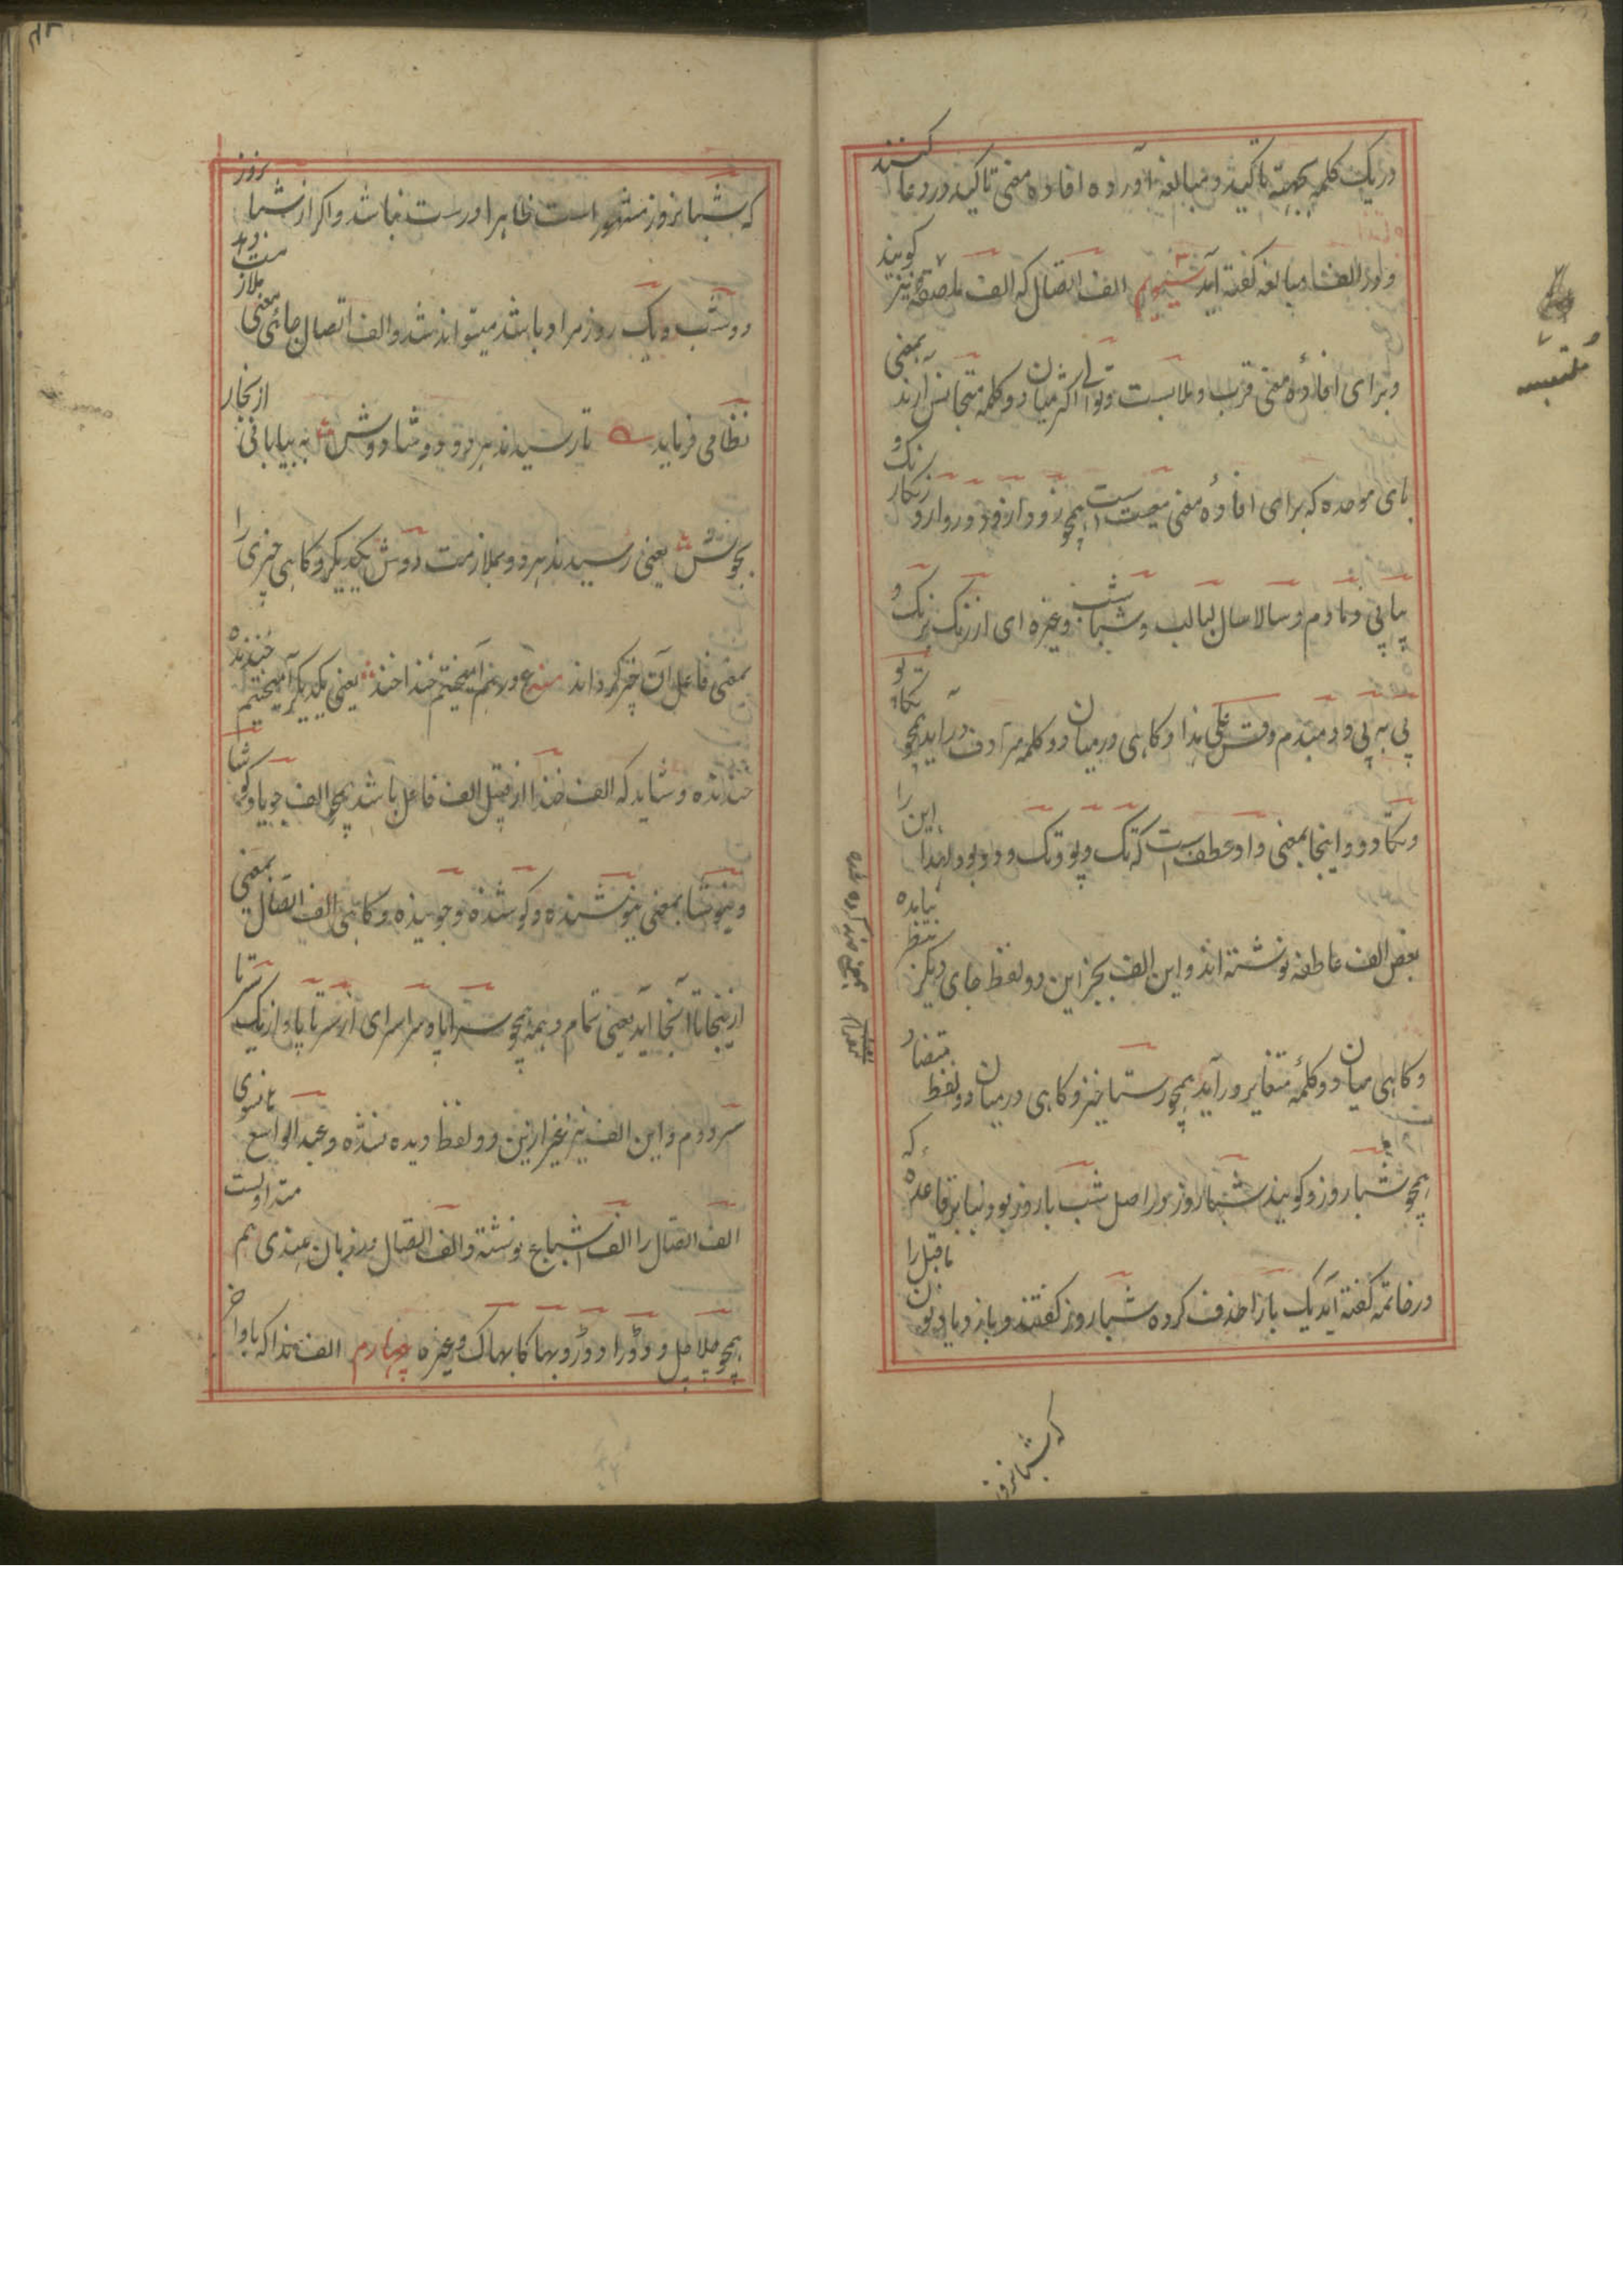 در یک کلمه بجهتة تاکید و مبالغه آورده افادهٔ معنی تاکید و رود عا کنند
و لوز الف مبالغه گفته آید سیوم الف اتصال که الف ملصقه نیز گویند
و برای افادهٔ معنی قرب و ملابست و توالی اکثر میان دو کلمه متجانس آرند بمعنی
بای موحده که برای افادهٔ معنی معیت است همچو زودازود و روارو و رنگ
زنگار
پیاپی و دمادم و سالاسال لبالب و شباشب و غیره ای از رنگ برنگ و
پی به پی و دمبدم و قس علی هذا و کاهی در میان دو کلمه مترادف در آید همچو تکاپو
و تکادو و اینجا بمعنی واو عطف است که تک و پو و تک و دو بود و لهذا این را
بعض الف عاطفه نوشته اند و این الف بجز این دو لفظ جای دیگر بنظر نیامده
و کاهی میان دو کلمهٔ متغایر در آید همچو رستاخیز و کاهی در میان دو لفظ متضاد
همچو شباروز و گویند شباروز در اصل شب با روز بود بنا بر قاعده که
در خاتمه گفته آید یک با را حذف کرده شباروز گفتند و باز و یا و نون ماقبل را
که شبانروز
ملتبسه
که شبانروز مشهور است ظاهرا درست نباشد و اگر از شبانروز
دو شب و یک روز مراد باشد میتواند شد و الف اتصال جائی معنی ملازمت دهد
نظامی فرماید تا رسیدند هر دو دوشادوش به بیابانی از بخار
بجوش یعنی رسیدند هر دو بملازمت دوش یکدیگر و کاهی چیزی را
بمعنی فاعل آن چیز گرداند ع در هم آمیختیم خنداخند یعنی یکدیگر آمیختیم خنده زده
خندنده و شاید که الف خندا از قبیل الف فاعل باشد همچو الف جویا و کوشا
و نیوشا بمعنی نیوشنده و کوشنده و جوینده و کاهی الف اتصال بمعنی
از اینجا تا آنجا آید یعنی تمام و همه همچو سراپا و سراسر ای از سر تا پا و از یک سر تا
سر دوم و این الف نیز غیر ازین دو لفظ دیده نشده و عبدالواسع هانسوی
الف اتصال را الف اشباع نوشته و الف اتصال در زبان هندی هم متداولست
همچو میلامیل و دوڑا دوڑ و بهاکا بهاک و غیره چهارم الف ندا که باواخر